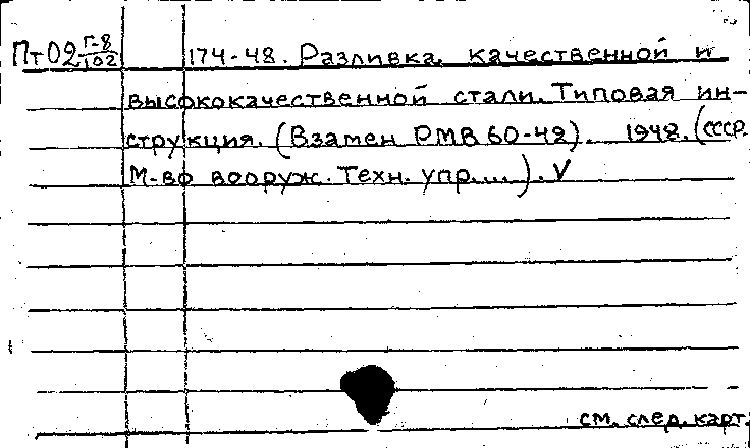 Пт02 Г-8/102 174-48. Разливка качественной и
высококачественной стали. Типовая ин-
струкция. (Взамен РМВ 60-42). 1948. (СССР.
М-во вооруж. Техн. упр....). V
см. след. карт